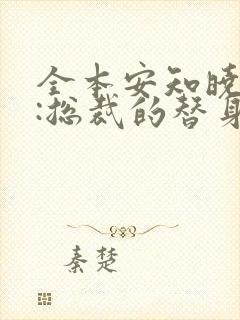 全本安知晓
:总裁的替身
秦楚